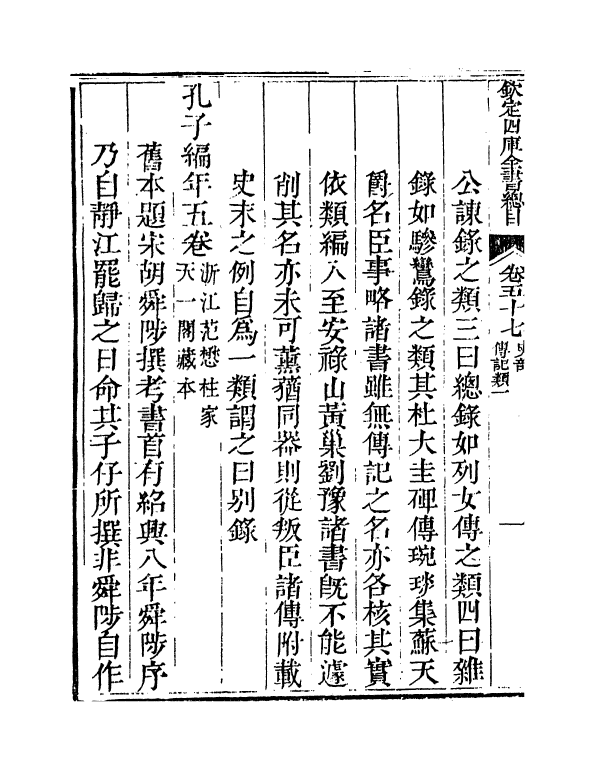 欽定四庫全書總目 卷五十七 史部 傳記類一 一
公諫錄之類三曰總錄如列女傳之類四曰雜
錄如驂鸞錄之類其杜大圭碑傳琬琰集蘇天
爵名臣事略諸書雖無傳記之名亦各核其實
依類編入至安祿山黃巢劉豫諸書旣不能遽
削其名亦未可薰蕕同器則從叛臣諸傳附載
史末之例自爲一類謂之曰別錄
孔子編年五卷 浙江范懋柱家天一閣藏本
舊本題宋胡舜陟撰考書首有紹興八年舜陟序
乃自靜江罷歸之日命其子仔所撰非舜陟自作